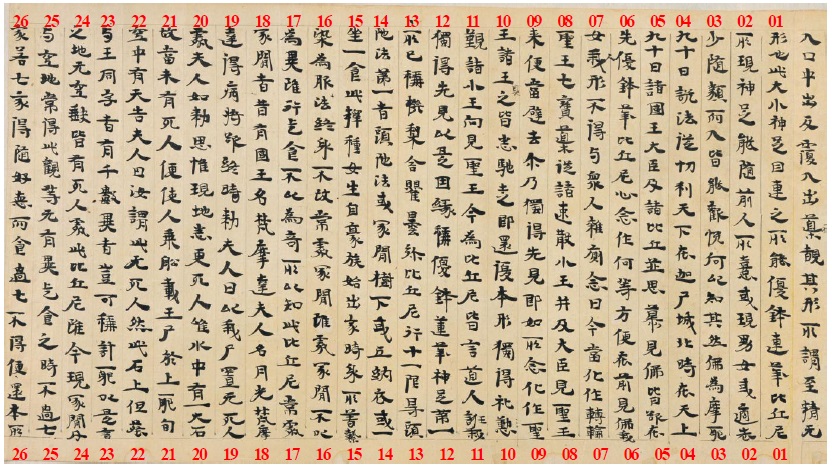 入口中出反覆入出稟靚其形所謂至精无
01 形也此大小神足目連之所能優鉢連華比丘尼 01
02 所現神足能隨前人所憙或現男女或適老 02
03 少隨類而入皆能歡悅何以知其然佛為摩耶 03
04 九十日說法從忉利天下在迦尸城北時在天上 04
05 九十日諸國王大臣及諸比丘並思慕見佛皆欲在 05
06 先優鉢華比丘尼心念作何等方便在前見佛我 06
07 女人形不得与眾人雜廁念曰今當化作轉輪 07
08 聖王七寶導從諸速散小王并及大臣見聖王 08
09 來便當避去尒乃獨得先見即如所念化作聖 09
10 王諸王之皆志馳走即還復本形獨得礼懃 10
11 覲諸小王向見聖王今為比丘尼皆言道人誑我 11
12 獨得先見以是因緣稱優鉢蓮華神足第一 12
13 所已稱機梨舍瞿曇弥比丘尼行十一限㝵頭 13
14 陁法第一者頭陁法或冢閒樹下或五納衣或一 14
15 坐一食此釋種女生自豪族始出家時身所著繫 15
16 染為服法終身不改常處冢閒雖處冢閒不以 16
17 為異雖行乞食不以為奇所以知此比丘尼常處 17
18 冢閒者昔有國王名梵摩達夫人名月光梵摩 18
19 達得病將欲終時勑夫人曰以我尸置无死人 19
20 處夫人如勑思惟現地悉更死人唯水中有一大石 20
21 故當未有死人便使人乘船載王尸於上耶旬 21
22 空中有天告夫人曰汝謂此无死人然此石上但葬 22
23 与王同字者有千數異者豈可稱計耶以是言 23
24 之地无空缺皆有死人處此比丘尼雖今現冢閒 24
25 与空地常得此觀等无有異乞食之時不過七 25
26 家若七家得隨好惡而食過七不得便還本所 26